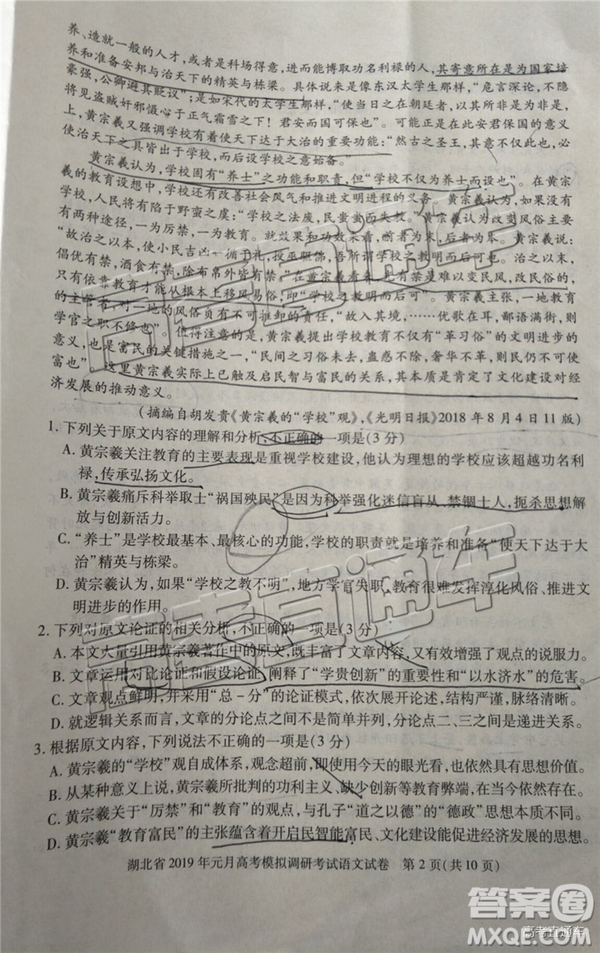 养、造就一般的人才，或者是科场得意，进而能博取功名利禄的人，其寄意所在是为国家培
养和准备安邦与治天下的精英与栋梁。具体说来是像东汉太学生那样，“危言深论，不隐
豪强，公卿避其贬议”；是如宋代的太学生那样，“使当日之在朝廷者，以其所非是为非是，
将见盗贼奸邪慑心于正气霜雪之下！君安而国可保也”。可能正是在此安君保国的意义
上，黄宗羲又强调学校有使天下达于大治的重要功能：“然古之圣王，其意不仅此也，必
使治天下之具皆出于学校，而后设学校之意始备。”
黄宗羲认为，学校固有“养士”之功能和职责，但“学校不仅为养士而设也”。在黄宗
羲的教育设想中，学校还有改善社会风气和推进文明进程的义务。黄宗羲认为，如果没有
学校，人民将有陷于野蛮之虞：“学校之法废，民蚩蚩而失教。”黄宗羲认为改变风俗主要
有两种方式，一为厉禁，一为教育。就效果和功效来看，断者为末，断后者为本。黄宗羲说：
“故治之以本，使小民吉凶一循于礼，投巫驱佛，吾所谓学校之教明而后可也。治之以末，
倡优有禁，酒食有禁，除布帛外皆有禁。”在黄宗羲看来，只有禁是难以变民风、改民俗的，
只有依靠教育才能从根本上移风易俗，即“学校之教明而后可”。黄宗羲主张，一地教育
学官之职不修也”。值得注意的是，黄宗羲提出学校教育不仅有“革习俗”的文明进步的作用，
也是富民的关键措施之一，“民间之习俗未去，蛊惑不除，奢华不革，则民仍不可使
富也”，这里黄宗羲实际上已触及启民智与富民的关系，其本质是肯定了文明建设对经
济发展的推动意义。
（摘编自胡发贵《黄宗羲的“学校”观》，《光明日报》2018年8月4日11版）
1. 下列关于原文内容的理解和分析，不正确的一项是（3分）
A. 黄宗羲关注教育的主要表现是重视学校建设，他认为理想的学校应该超越功名利
禄，传承弘扬文化。
B. 黄宗羲痛斥科举取士“祸国殃民”是因为科举强化迷信盲从、禁锢士人，扼杀思想解
放与创新活力。
C. “养士”是学校最基本、最核心的功能，学校的职责就是培养和准备“使天下达于大
治”精英与栋梁。
D. 黄宗羲认为，如果“学校之教不明”，地方学官失职，教育很难发挥淳化风俗、推进文
明进步的作用。
2. 下列对原文论证的相关分析，不正确的一项是（3分）
A. 本文大量引用黄宗羲著作中的原文，既丰富了文章内容，又有效增强了观点的说服力。
B. 文章运用对比论证和假设论证，阐释了“学贵创新”的重要性和“以水济水”的危害。
C. 文章观点鲜明，并采用“总－分”的论证模式，依次展开论述，结构严谨，脉络清晰。
D. 就逻辑关系而言，文章的分论点之间不是简单并列关系，分论点二、三之间是递进关系。
3. 根据原文内容，下列说法不正确的一项是（3分）
A. 黄宗羲的“学校”观自成体系，观念超前，即使用今天的眼光看，也具有思想价值。
B. 从某种意义上说，黄宗羲所批判的功利主义，缺少创新等教育弊端，在当今依然存在。
C. 黄宗羲关于“厉禁”和“教育”的观点，与孔子“道之以德”的“德政”思想具有一致性。
D. 黄宗羲“教育富民”的主张蕴含着开启民智能富民、文化建设能推动经济发展的思想。
湖北省2019年元月高考模拟调研考试语文试卷 第2页（共10页）
高考直通车
答案圈
MXQE.COM